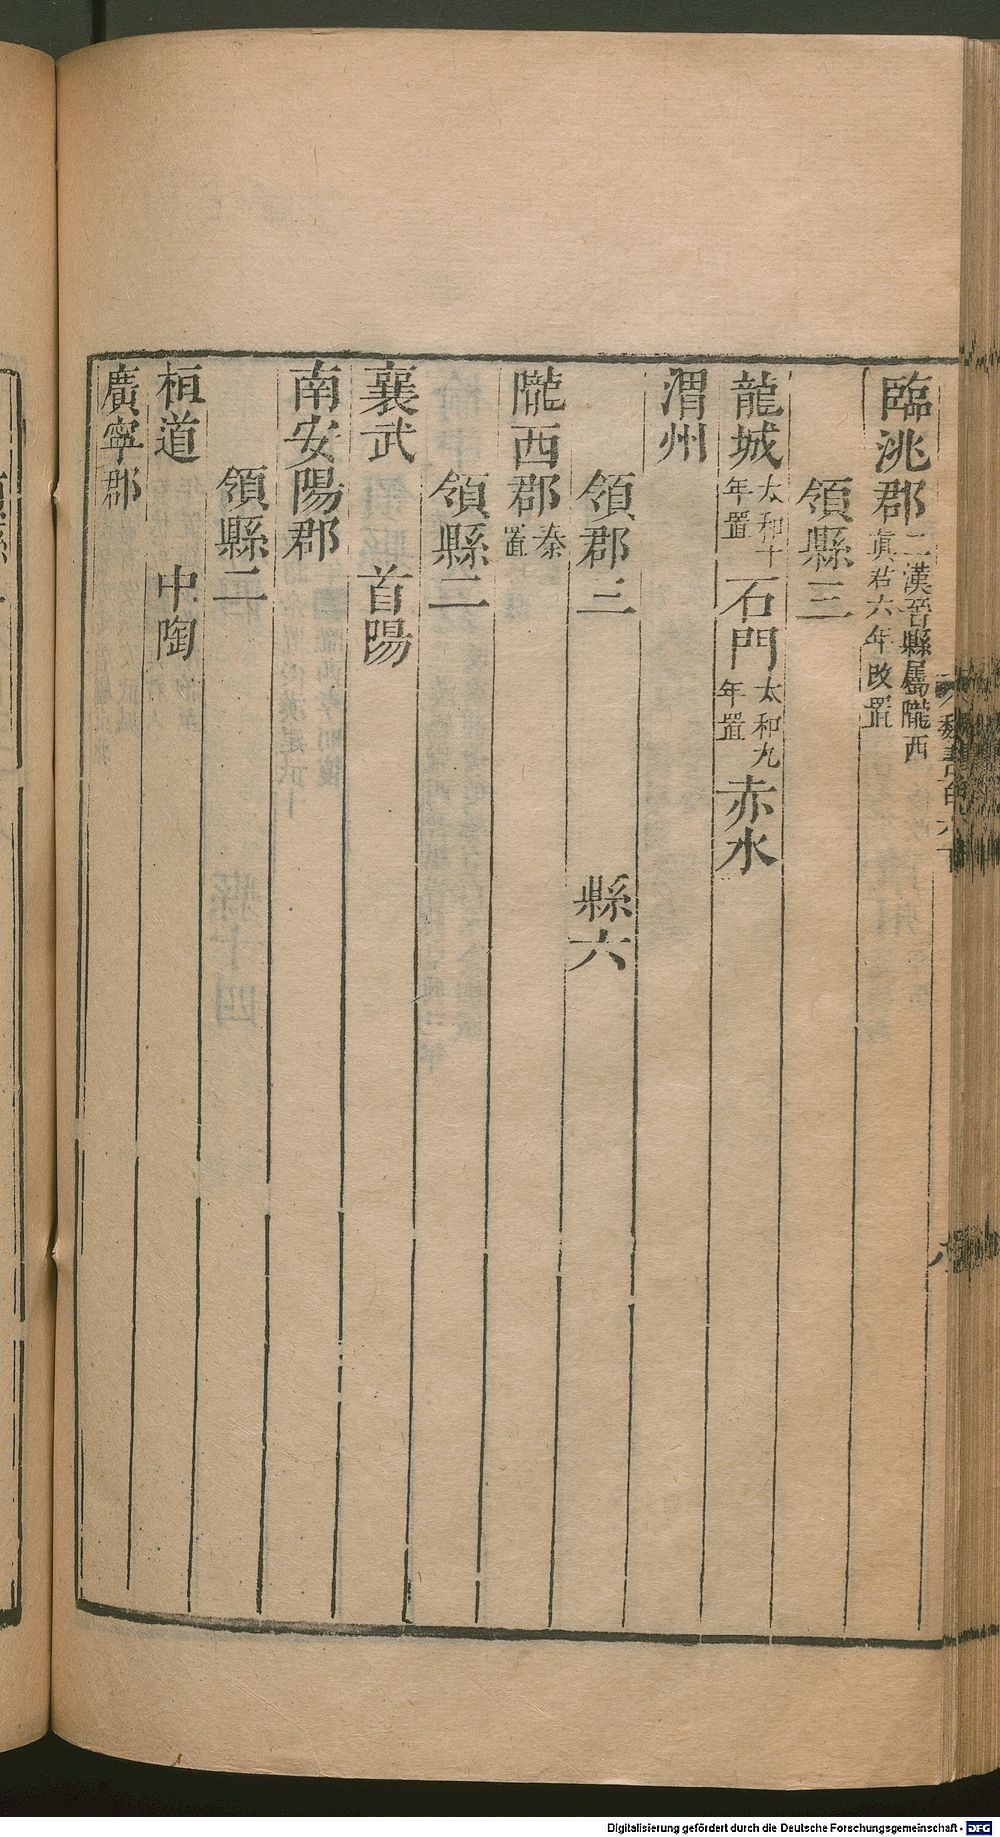 臨洮郡二漢晉縣屬隴西眞君六年改置
領縣三
龍城太和十年置石門太和九年置赤水
渭州
領郡三 縣六
隴西郡秦置
領縣二
襄武 首陽
南安陽郡
領縣二
桓道 中陶
廣寧郡
Digitalisierung gefördert durch die Deutsche Forschungsgemeinschaft - DFG